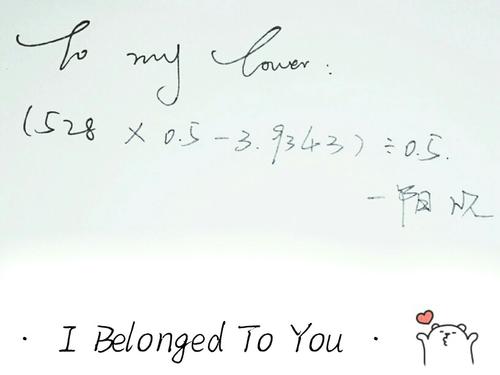 To my lover:
(528 × 0.5 - 3.9343) ÷ 0.5.
· I Belonged To You ·